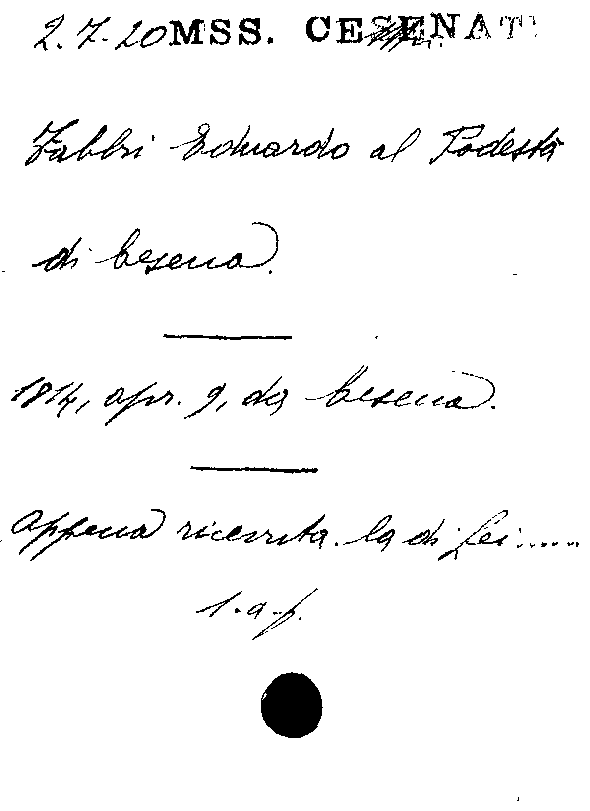 2.7.20 MSS. CESENATI
Fabbri Eduardo al Podestà
di Cesena.
1814, apr. 9, da Cesena.
Appena ricevuta la di Lei.....
l.a.f.